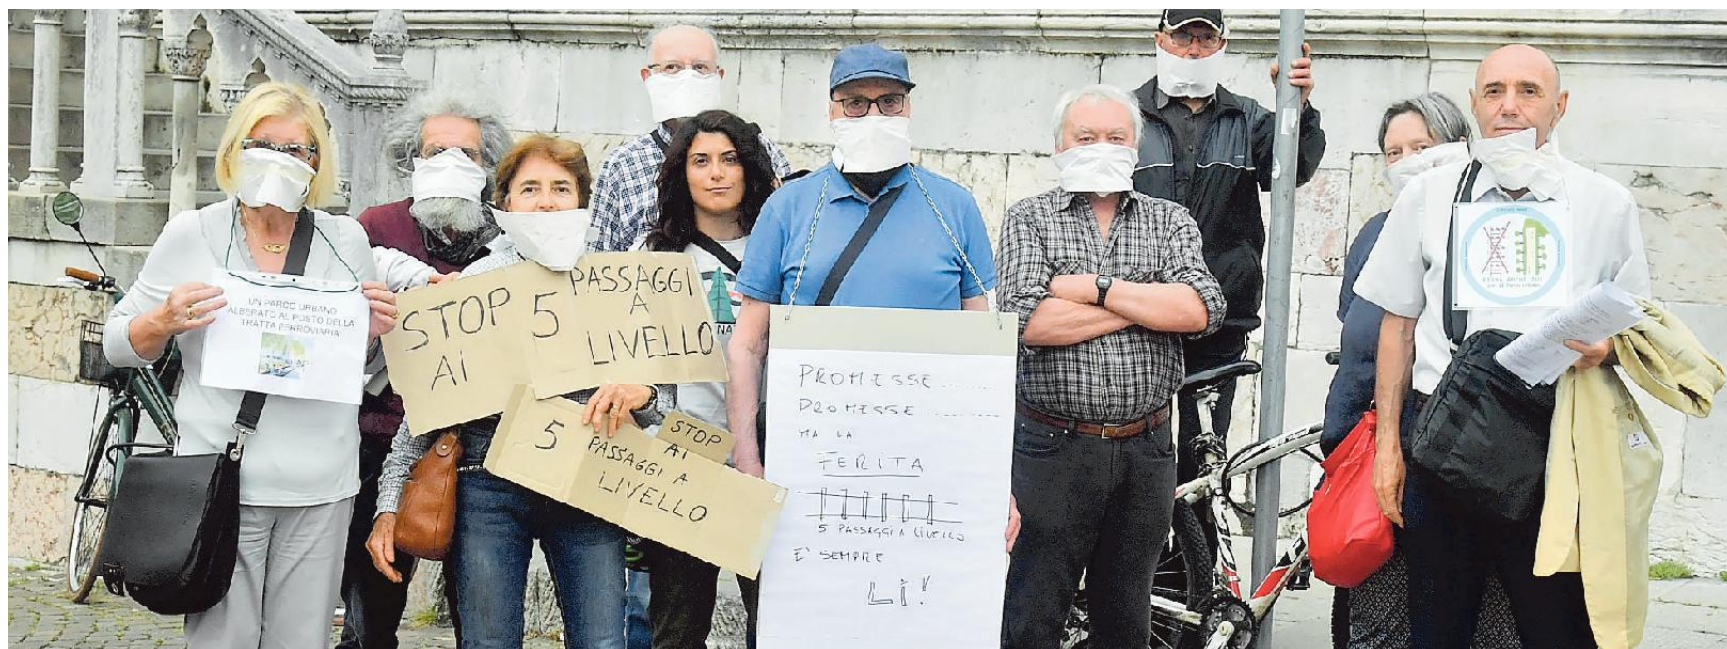 UN PARCO URBANO
ALBERATO AL POSTO DELLA
TRATTA FERROVIARIA
STOP
AI
5 PASSAGGI
A
LIVELLO
5 PASSAGGI A
LIVELLO
STOP
AI
PROMESSE ........
PROMESSE ..........
MA LA
FERITA
5 PASSAGGI A LIVELLO
E' SEMPRE
LÌ!
NAT